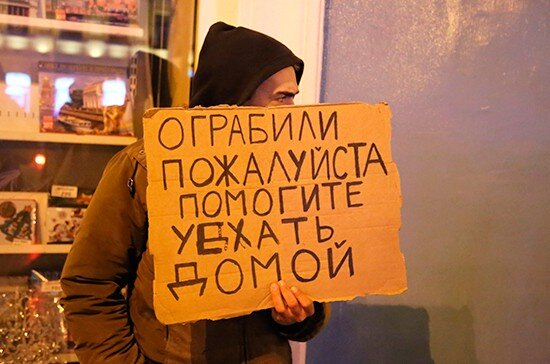 ОГРАБИЛИ
ПОЖАЛУЙСТА
ПОМОГИТЕ
УЕХАТЬ
ДОМОЙ